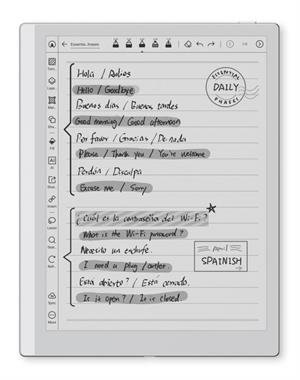 Essential_Jensen
1/8
Hola / Adios
Hello / Goodbye
Buenos dias / Buenas tardes
Good morning / Good afternoon
Por favor / Gracias / De nada
Please / Thank you / You're welcome
Perdón / Disculpa
Excuse me / Sorry
ESSENTIAL
DAILY
PHRASES
¿Cuál es la contraseña del Wi-Fi?
What is the Wi-Fi password?
Necesito un enchufe.
I need a plug / outlet
Está abierto? / Está cerrado.
Is it open? / It is closed.
SPANISH
Fill
AI
Insert
Lasso
Sync
More